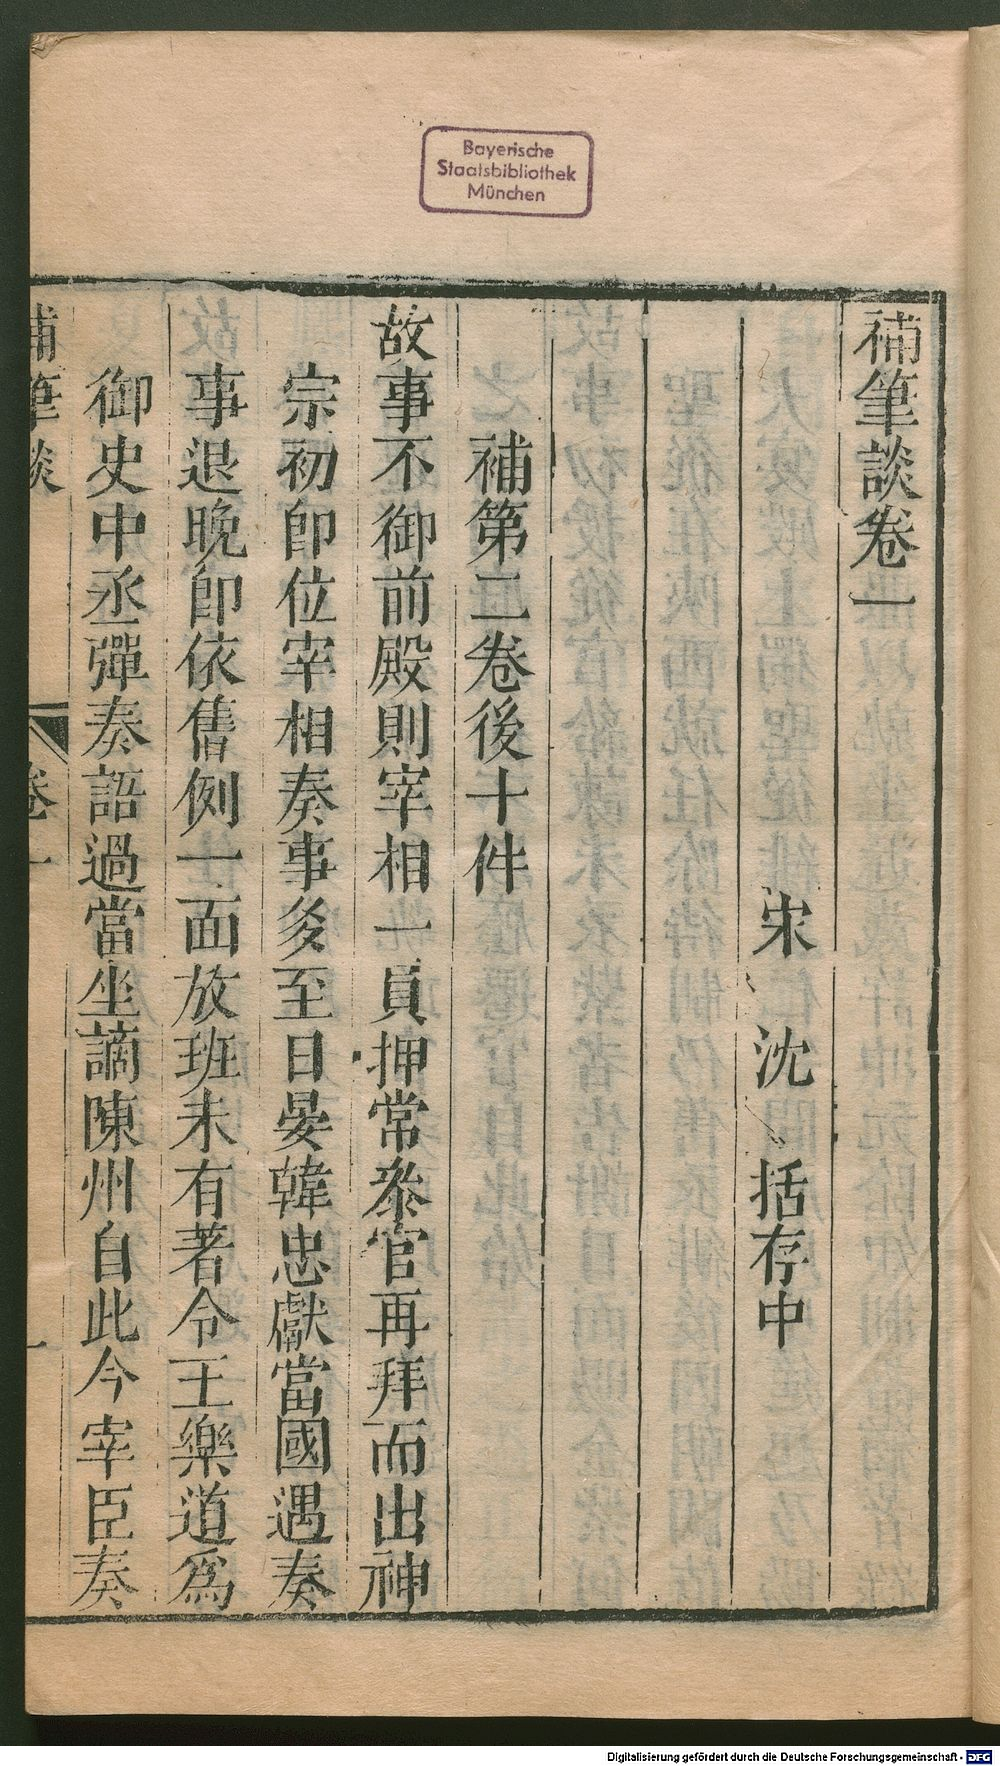 Bayerische
Staatsbibliothek
München
補筆談卷一
宋 沈 括存中
補第二卷後十件
故事不御前殿則宰相一員押常叅官再拜而出神
宗初卽位宰相奏事多至日晏韓忠獻當國遇奏
事退晚卽依舊例一面放班未有著令王樂道爲
御史中丞彈奏語過當坐謫陳州自此今宰臣奏
補筆談
卷一
一
Digitalisierung gefördert durch die Deutsche Forschungsgemeinschaft - DFG